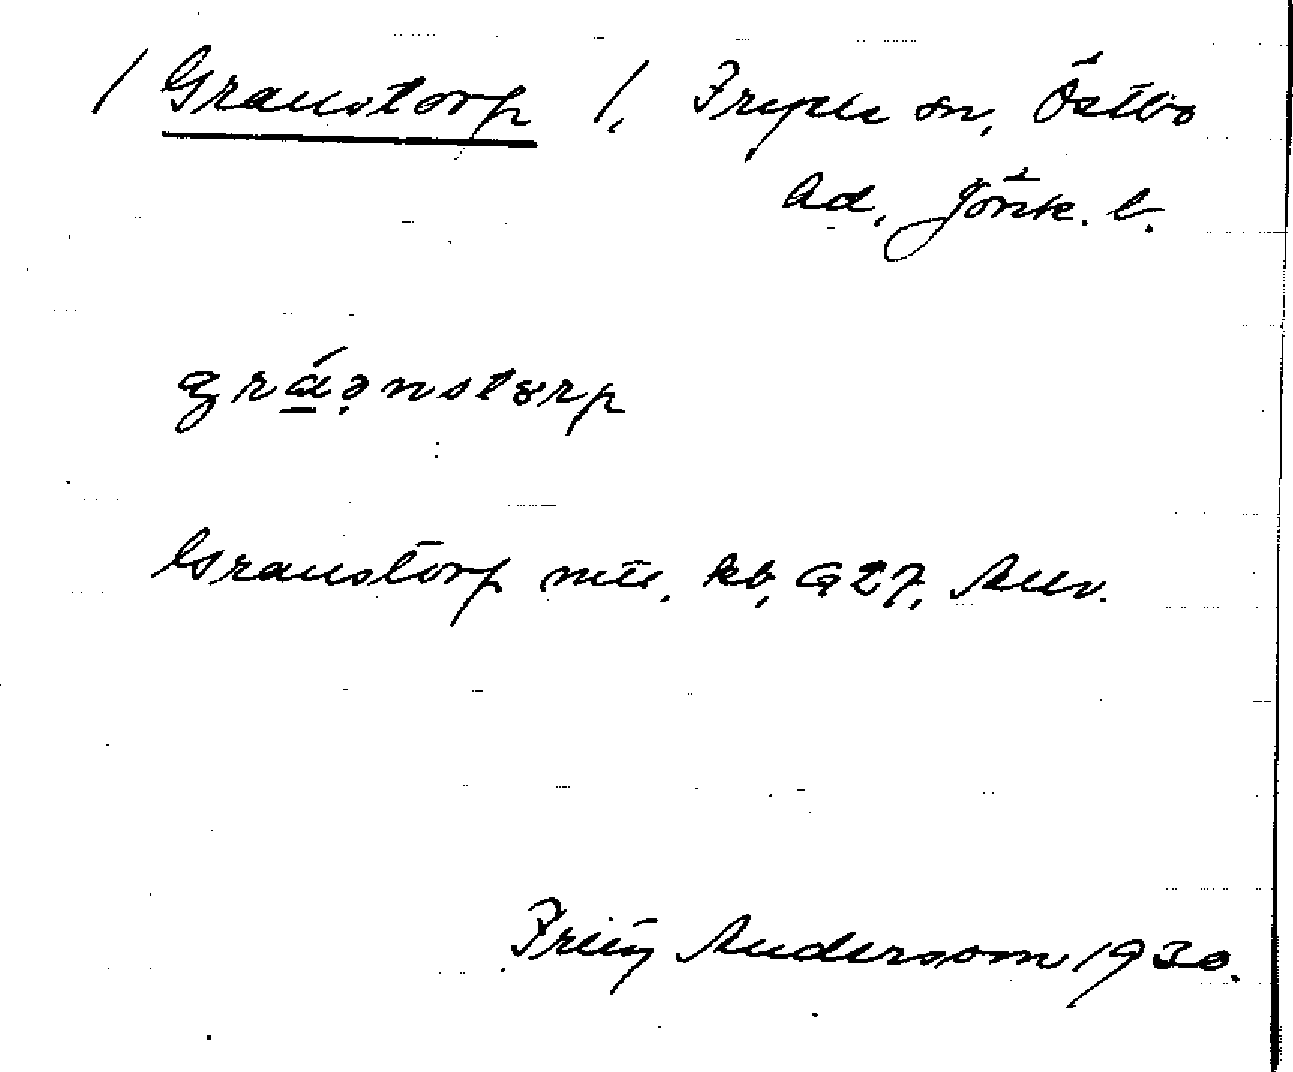 / Granstorp /, Fryele sn, Östbo
hd, Jönk. l.
gráənstorp
Granstorp mtl. kb, G27, Anv.
Fritz Andersson 1930.